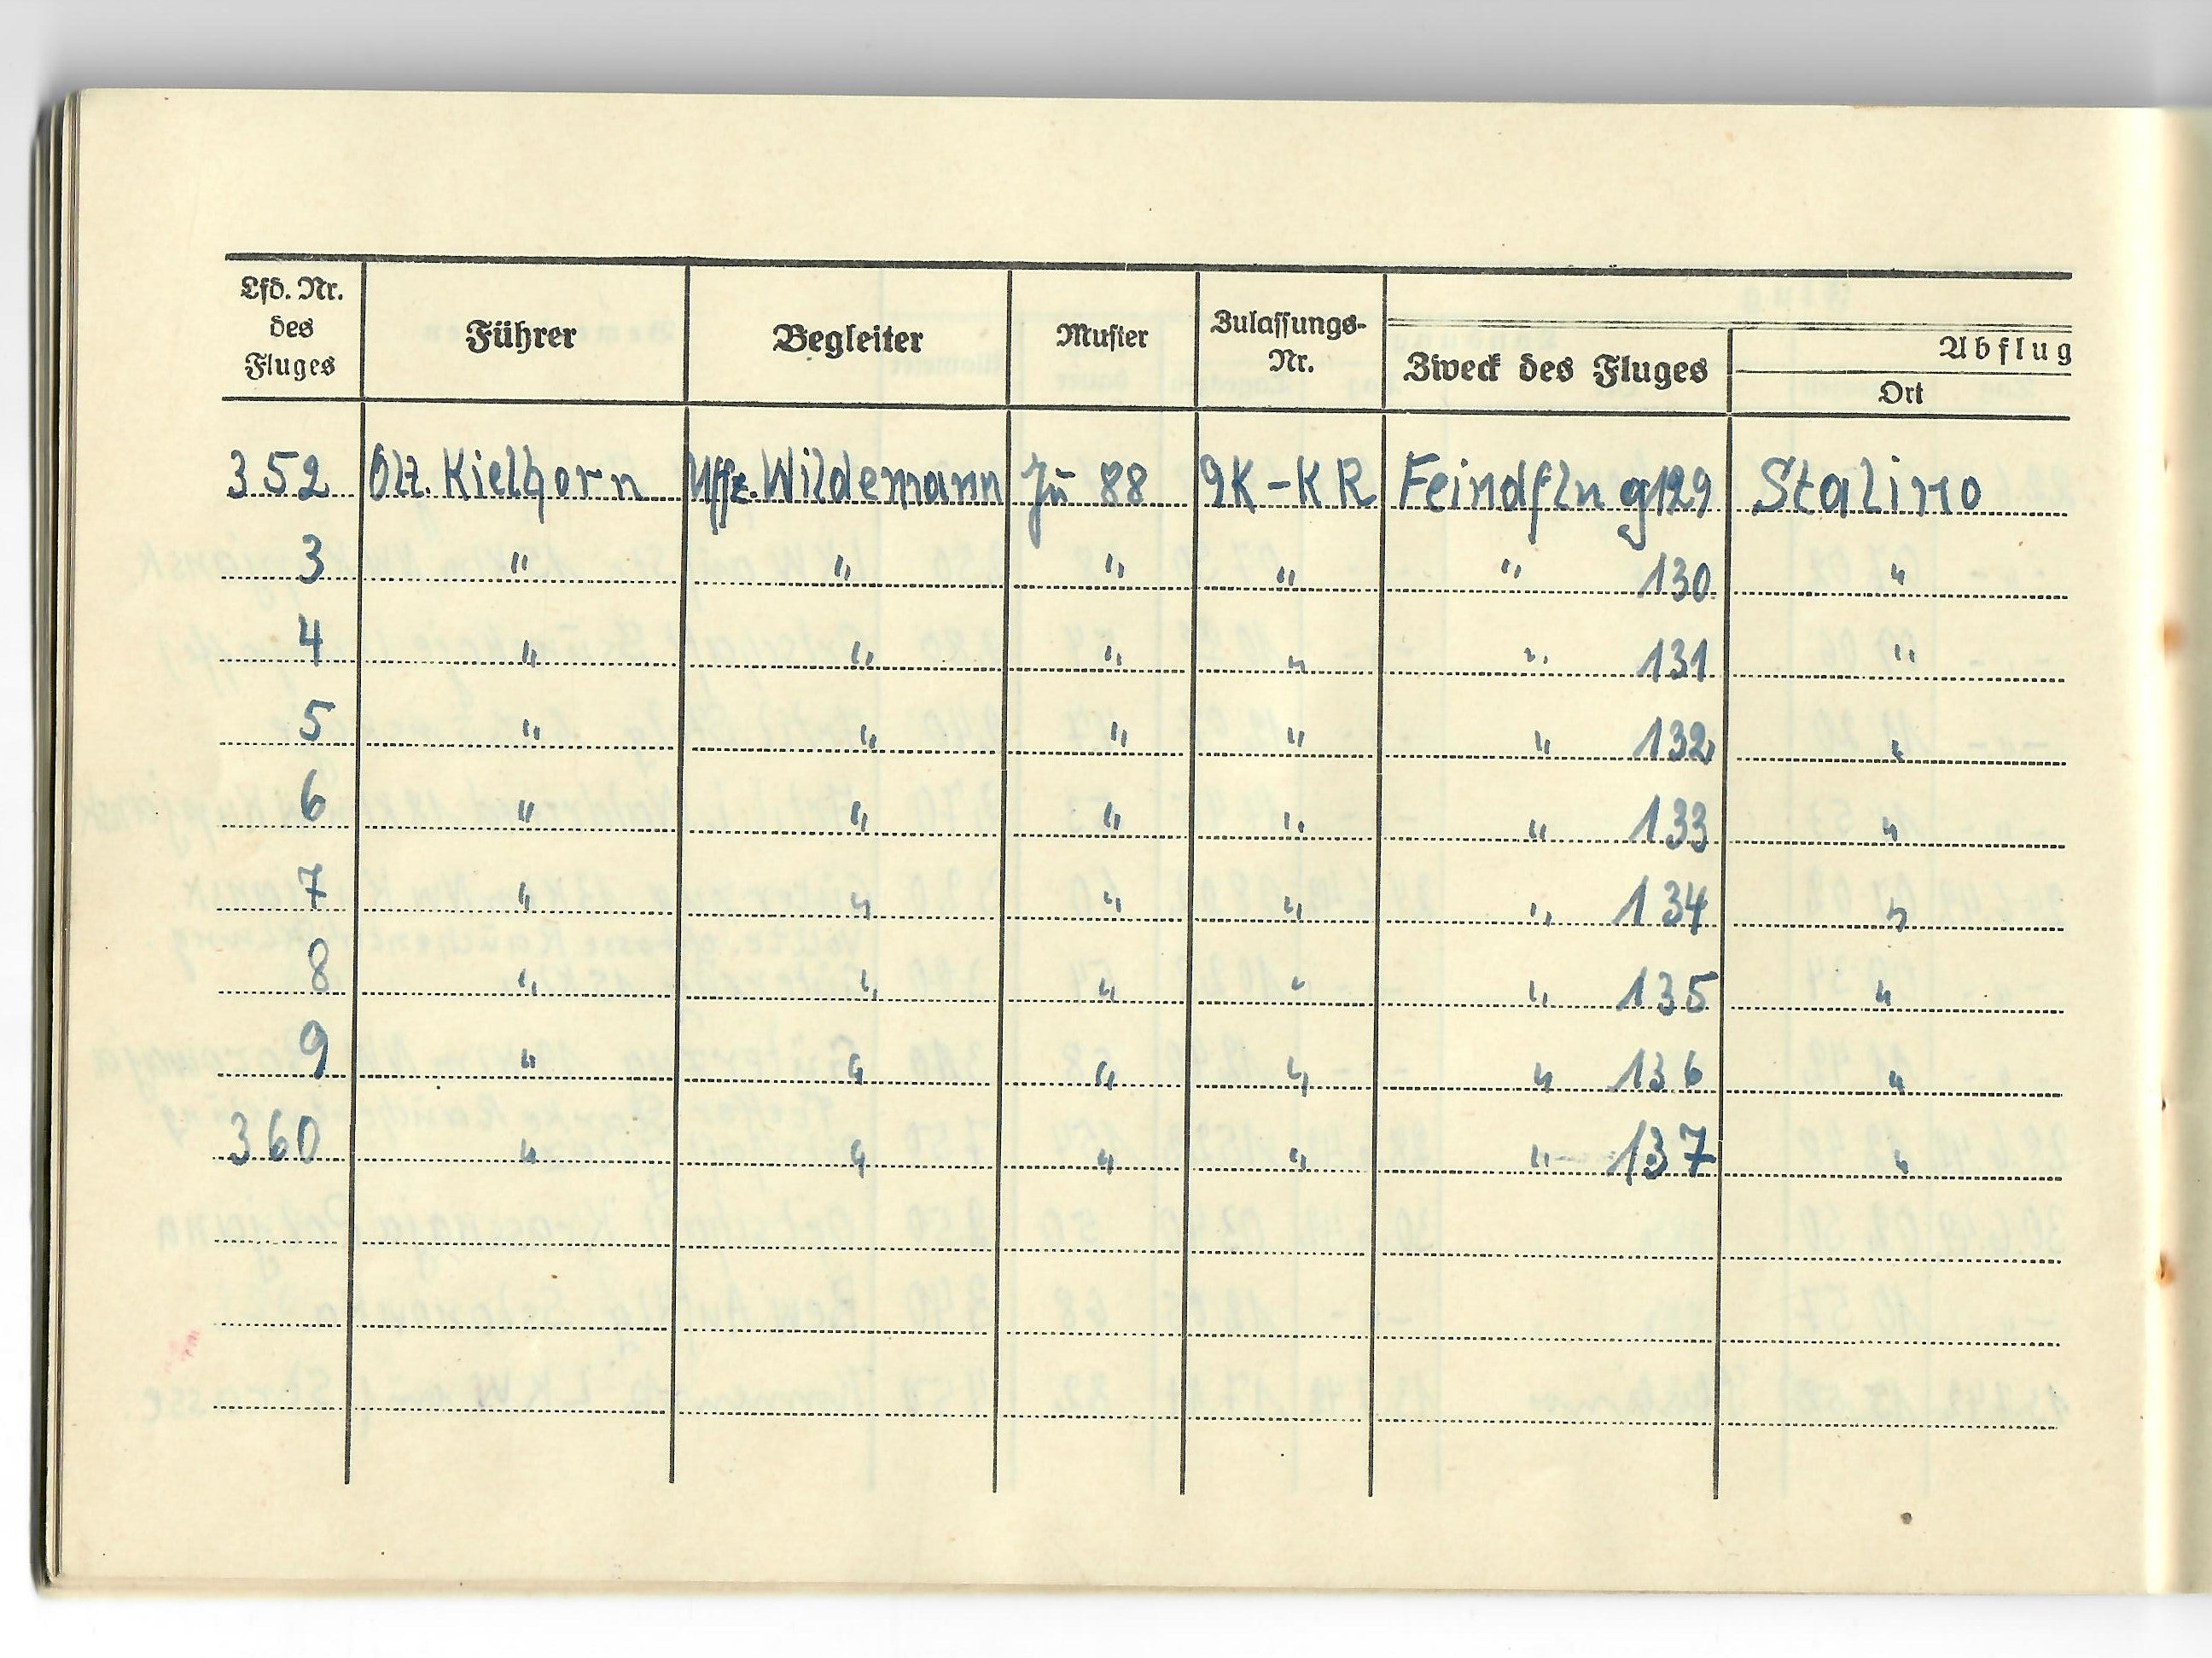 Lfd. Nr. des Fluges Führer Begleiter Muster Zulassungs-Nr. Zweck des Fluges Abflug Ort
352 Olt. Kielhorn Uffz. Wildemann Ju 88 9K-KR Feindflug 129 Stalino
3 " " " " " 130 "
4 " " " " " 131 "
5 " " " " " 132 "
6 " " " " " 133 "
7 " " " " " 134 "
8 " " " " " 135 "
9 " " " " " 136 "
360 " " " " " 137 "